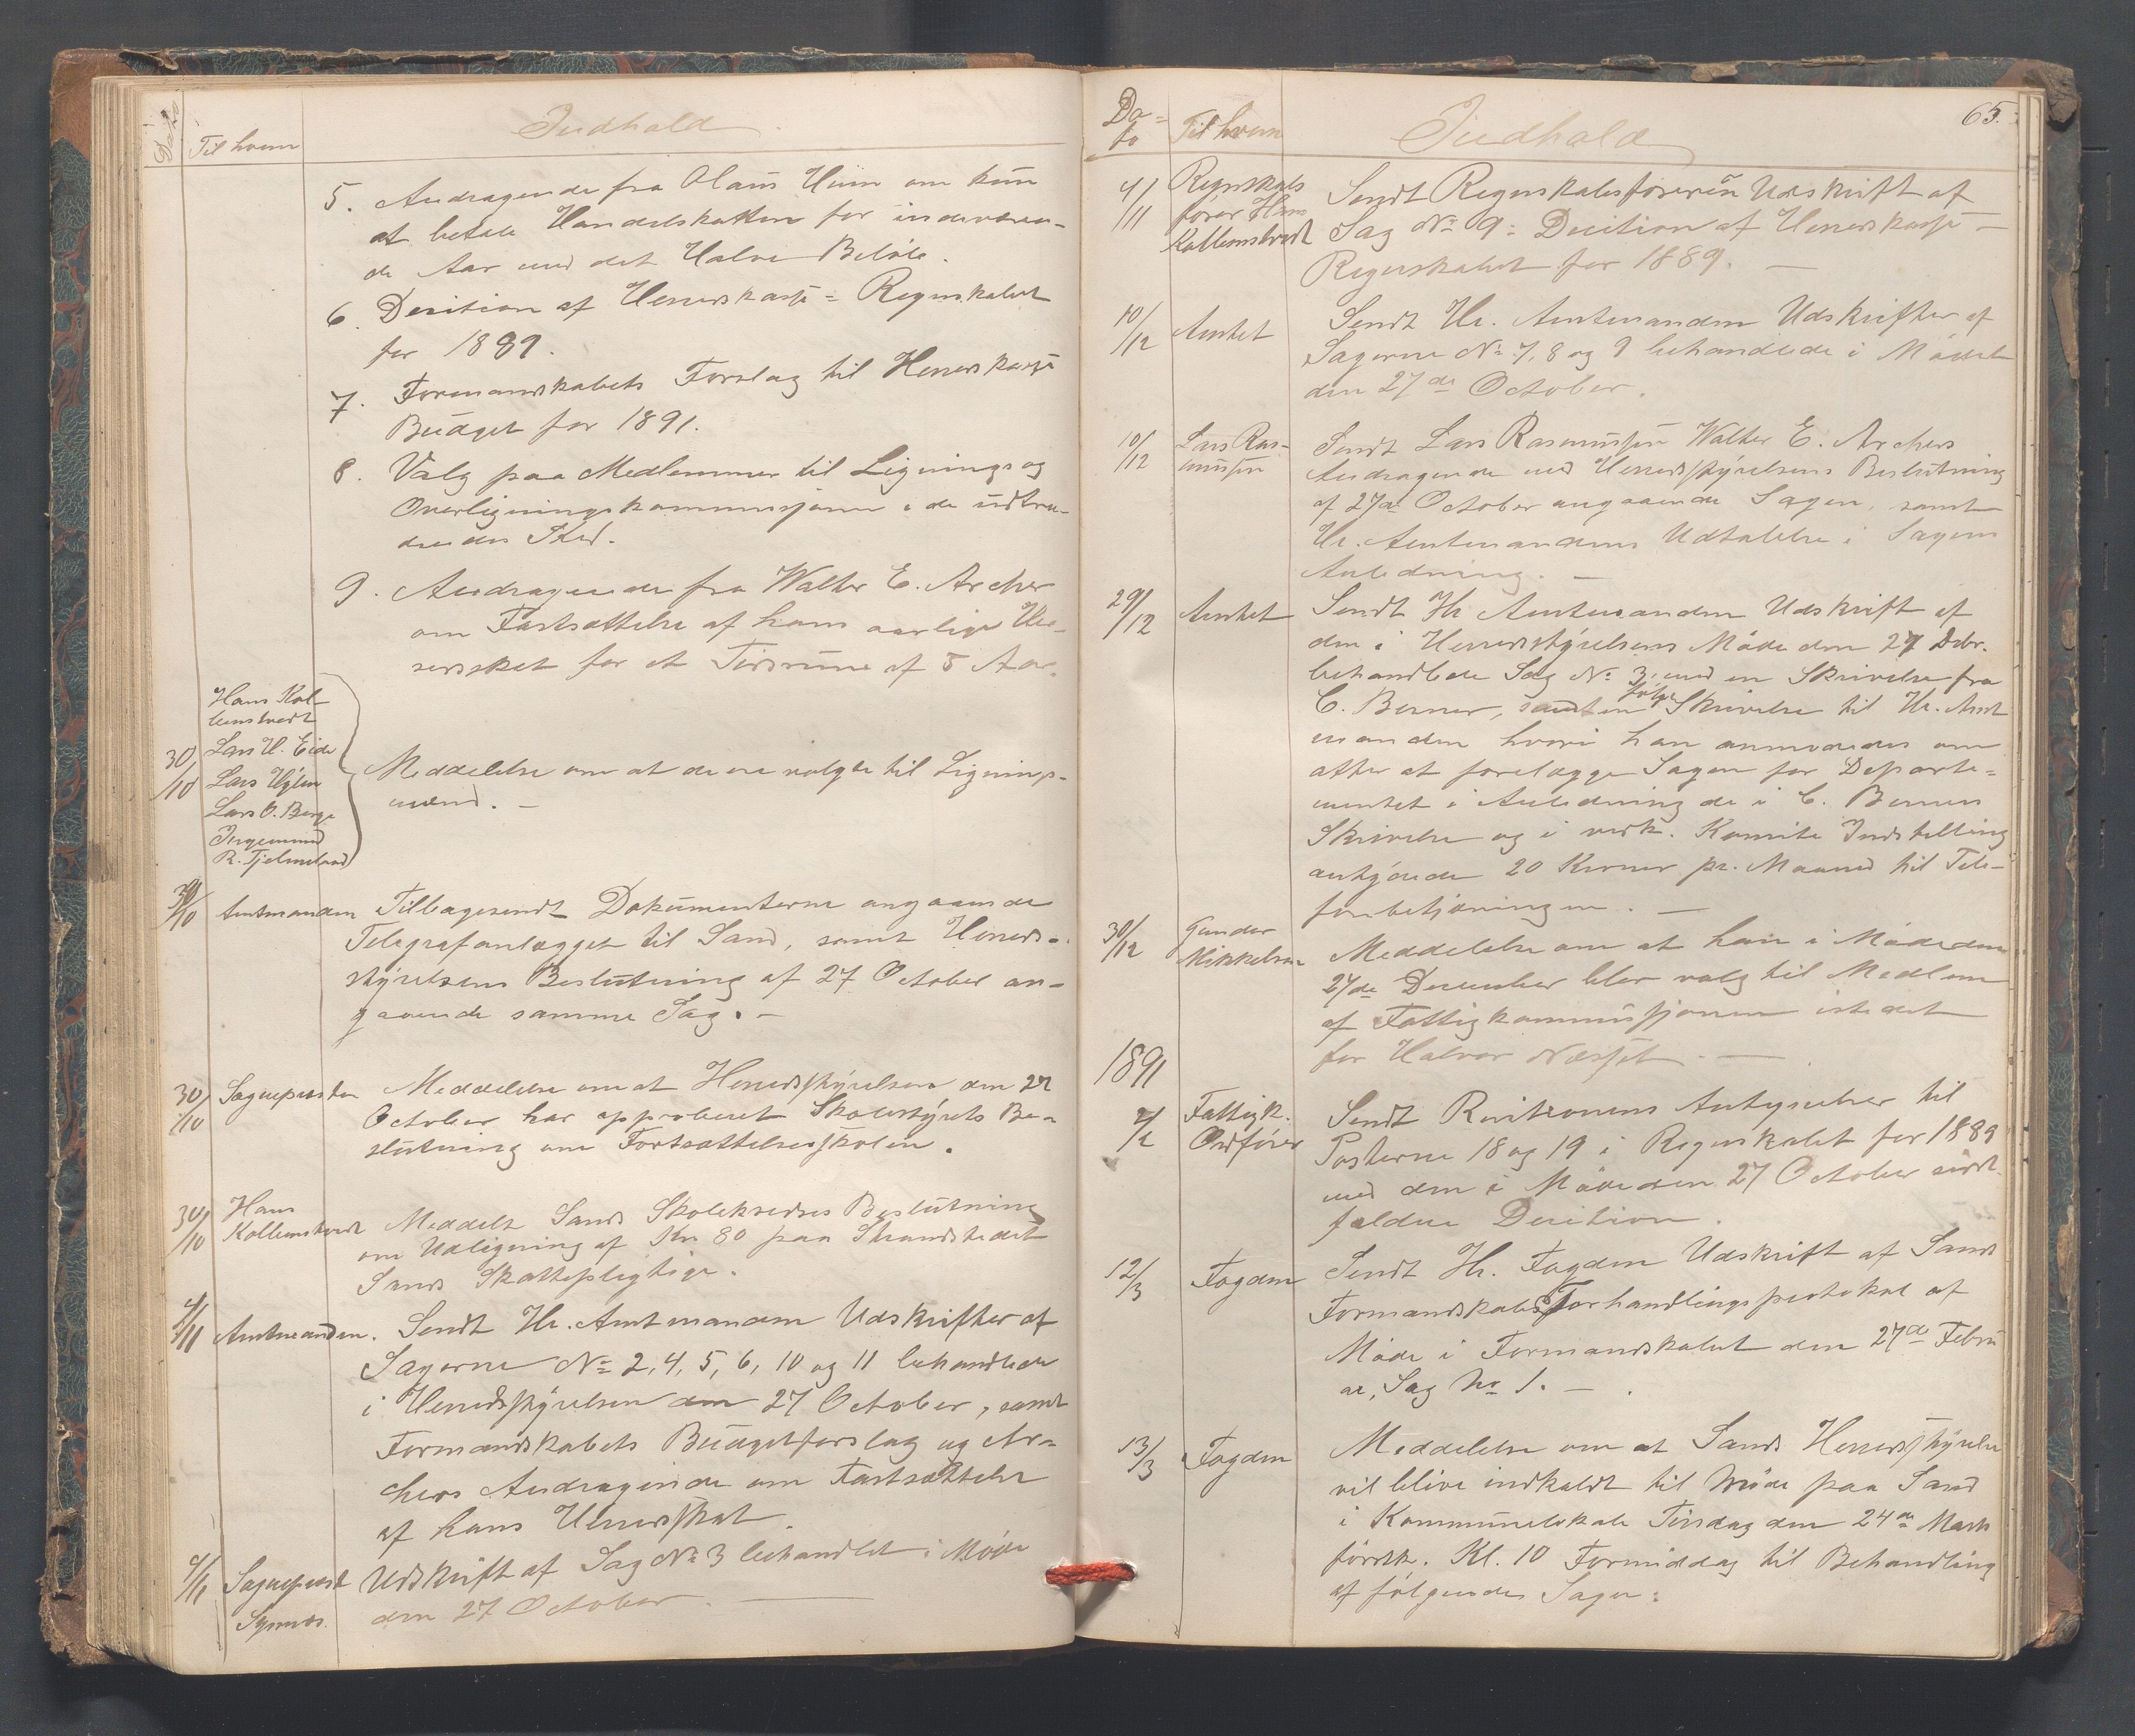 Dato
Til hvem
Indhold
5. Andragende fra Olaus Hiim om kun
at betale Handelskatten for indeværen-
de Aar med det Halve Beløb.
6. Desition af Herredskasse = Regnskabet
for 1889.
7. Formandskabets Forslag til Herredskasse
Budget for 1891.
8. Valg paa Medlemmer til Lignings og
Overligningskommissjonen i de udtræ-
dendes Sted.
9. Andragende fra Walter E. Archer
om Fastsættelse af hans aarlige Her-
redsskat for et Tidsrum af 5 Aar.
Hans Kol-
lemstvedt
Lars H. Eide
30/10 Lars Hylen
Lars O. Berge
Ingemund
R. Tjelmeland
Meddelelse om at de ere valgte til Lignings-
mænd. —
30/10 Amtmanden Tilbagesendt Dokumenterne angaaende
Telegrafanlægget til Sand, samt Herreds-
styrelsens Beslutning af 27 October an-
gaaende samme Sag. —
30/10 Sognepresten Meddelelse om at Herredsstyrelsen den 27
October har approberet Skolestyrets Be-
slutning om Fortsættelsesskolen.
30/10 Hans
Kollemstvedt Meddelt Sands Skolekredses Beslutning
om Udligning af Kr 80 paa Strandstedet
Sands Skattepligtige.
4/11 Amtmanden. Sendt Hr. Amtmanden Udskrifter af
Sagerne No 2, 4, 5, 6, 10 og 11 behandlede
i Herredsstyrelsen den 27 October, samt
Formandskabets Budgetforslag og Ar-
chers Andragende om Fastsættelse
af hans Herredsskat.
4/11 Sogneprest Udskrift af Sag No 3 behandlet i Møde
Synnes. den 27 October. —
Da-
to
Til hvem
Indhold
65.
4/11 Regnskabs
fører Hans
Kollemstvedt
Sendt Regnskabsføreren Udskrift af
Sag No 9: Desition af Herredskasse —
Regnskabet for 1889. —
10/12 Amtet Sendt Hr. Amtmanden Udskrifter af
Sagerne No 7, 8 og 9 behandlede i Mødet
den 27de October.
10/12 Lars Ras-
mussen
Sendt Lars Rasmussen Walter E. Archers
Andragende med Herredsstyrelsens Beslutning
af 27de October angaaende Sagen, samt
Hr. Amtmandens Udtalelse i Sagens
Anledning. —
29/12 Amtet Sendt Hr Amtmanden Udskrift af
den i Herredsstyrelsens Møde den 27 Dcbr.
behandlede Sag No 3, med en Skrivelse fra
C. Berner, samt en følge Skrivelse til Hr. Amt
manden hvori han anmodedes om
atter at forelægge Sagen for Departe-
mentet i Anledning de i C. Berners
Skrivelse og i vedk. Komite Indstilling
antydede 20 Kroner pr. Maaned til Tele-
fonbetjeningen. —
30/12 Gunder
Mikkelsen Meddelelse om at han i Møde den
27de December blev valg til Medlem
af Fattigkommissjonen istedet
for Halvor Næsset. —
1891
2/2 Fattigk.
Ordfører
Sendt Revisionens Antegnelser til
Posterne 18 og 19 i Regnskabet for 1889
med den i Møde den 27 October ned-
faldne Desition.
12/3 Fogden Sendt Hr. Fogden Udskrift af Sands
Formandskabs Forhandlingsprotokol af
Møde i Formandskabet den 27de Febru
ar, Sag No 1. —
13/3 Fogden Meddelelse om at Sands Herredsstyrelse
vil blive indkaldt til Møde paa Sand
i Kommunelokale Tirsdag den 24de Marts
førstk. Kl. 10 Formiddag til Behandling
af følgende Sager: